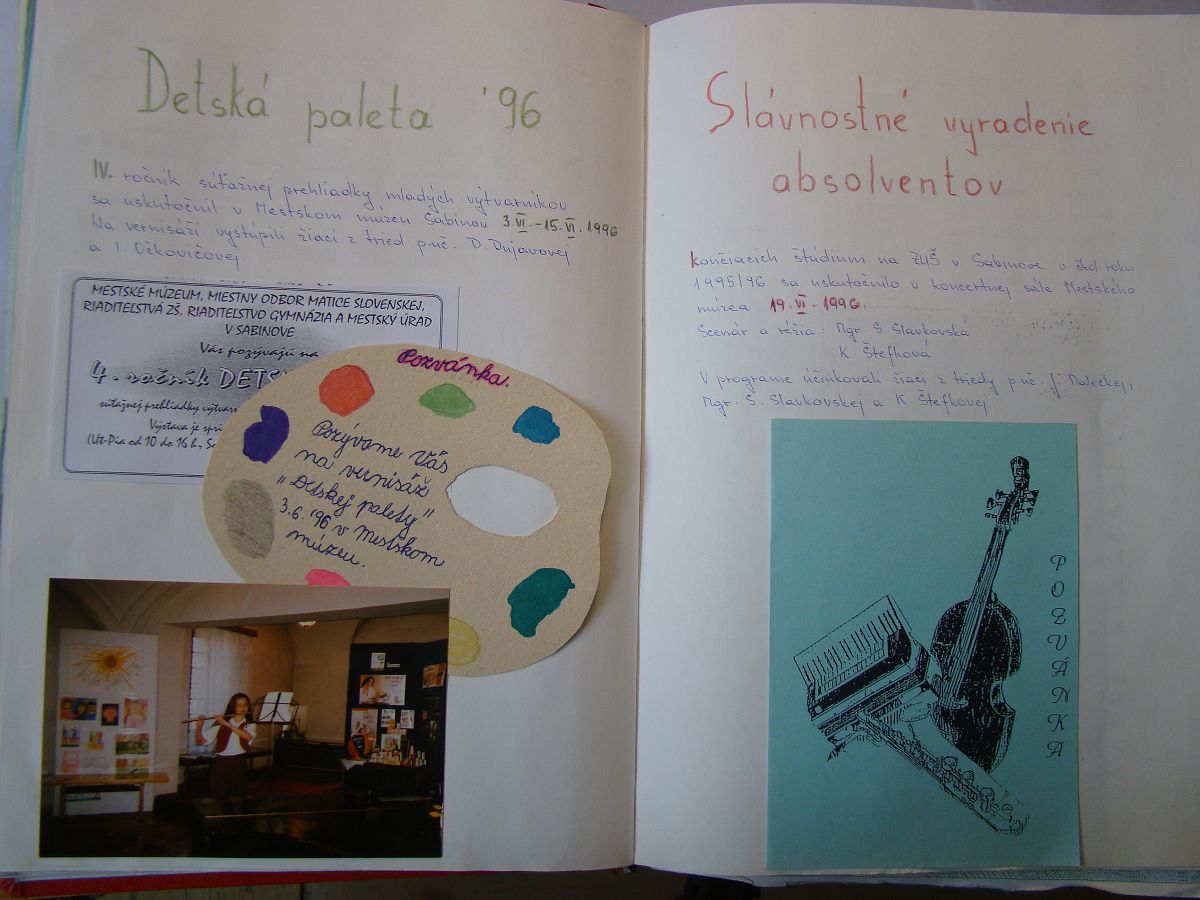 Detská paleta '96
IV. ročník súťažnej prehliadky mladých výtvarníkov
sa uskutočnil v Mestskom múzeu Sabinov 3.VI.-15.VI.1996
Na vernisáži vystúpili žiaci z tried p.uč. D. Dujavovej
a I. Očkovičovej.
MESTSKÉ MÚZEUM, MIESTNY ODBOR MATICE SLOVENSKEJ,
RIADITEĽSTVÁ ZŠ, RIADITEĽSTVO GYMNÁZIA A MESTSKÝ ÚRAD
V SABINOVE
Vás pozývajú na
4. ročník
súťažnej prehliadky
Výstava je
(Ut-Pia od 10 do 16 h.,
Pozvánka.
Pozývame Vás
na vernisáž
"Detskej palety"
3.6. '96 v Mestskom
múzeu.
Slávnostné vyradenie
absolventov
končiacich štúdium na ZUŠ v Sabinove v škol. roku
1995/96 sa uskutočnilo v koncertnej sále Mestského
múzea 19.VI.-1996.
Scenár a réžia: Mgr. S. Slavkovská
K. Štefková
V programe účinkovali žiaci z triedy p.uč. J. Maleckej,
Mgr. S. Slavkovskej a K. Štefkovej
POZVÁNKA